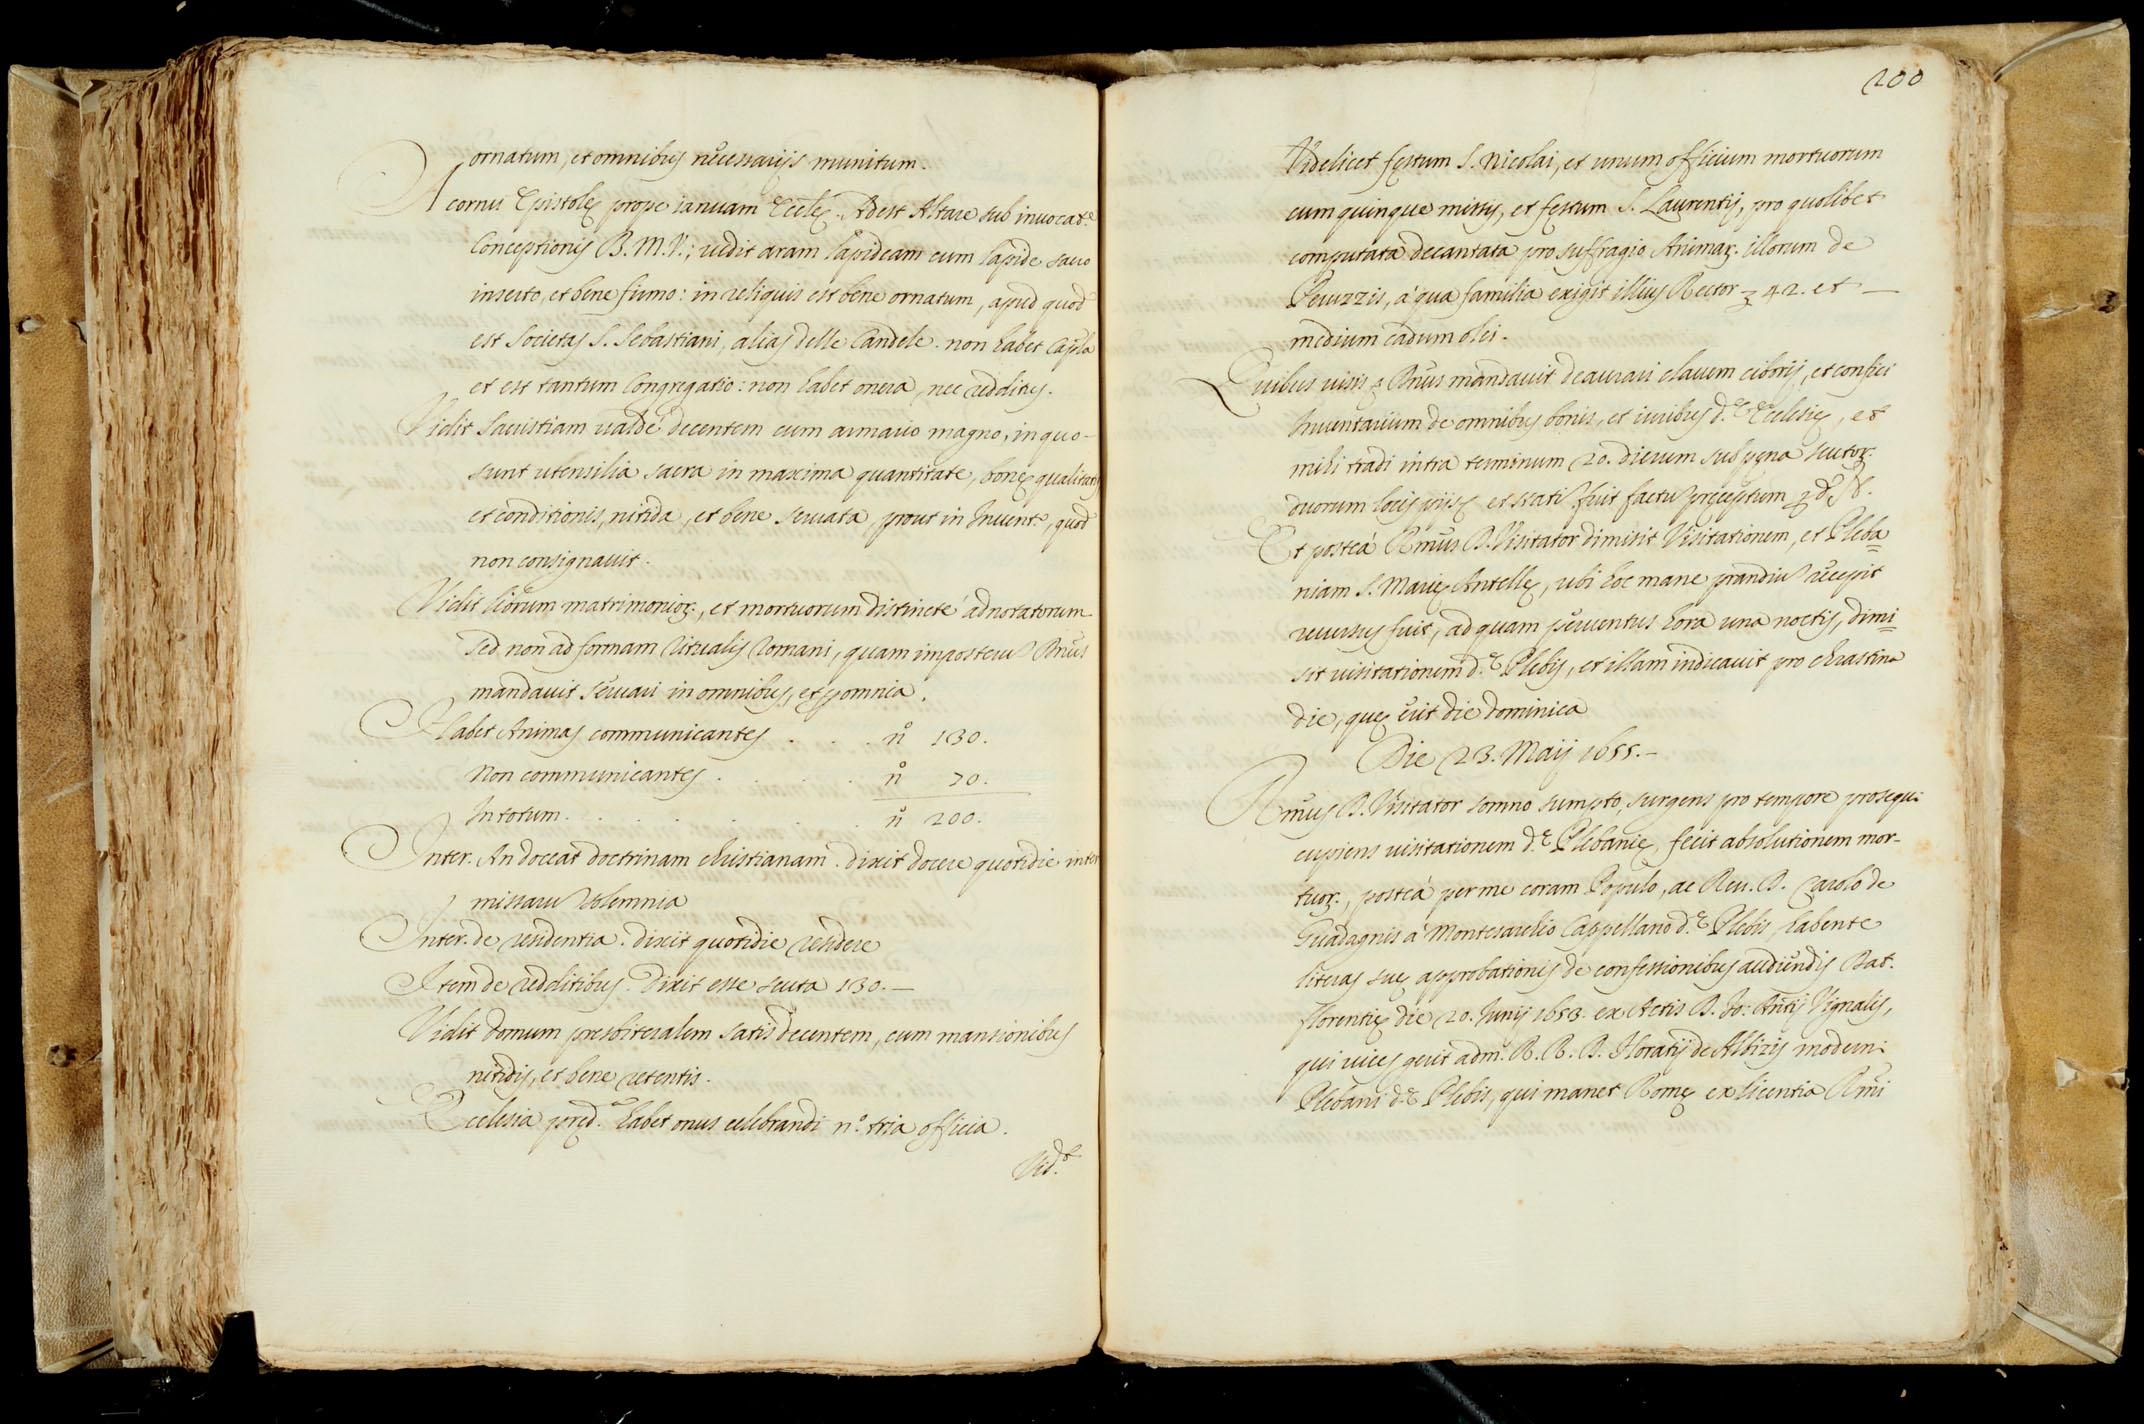 ornatum, et omnibus necessarijs munitum.
A cornu Epistolę prope ianuam Eccłę. Adest Altare sub inuocat.ᵉ
Conceptionis B. M. V.; uidit aram lapideam cum lapide sacro
inserto, et bene firmo: in reliquis est bene ornatum, apud quod
est Societas S. Sebastiani, alias delle Candele. non habet Capła
et est tantum Congregatio: non habet onera, nec redditus.
Vidit Sacristiam ualdè decentem cum armario magno, in quo-
sunt utensilia sacra in maxima quantitate, bonę qualitatis
et conditionis, nitida, et bene seruata, prout in Inuent.º, quod
non consignauit.
Vidit librum matrimonioʒ., et mortuorum distinctè adnotatorum
sed non ad formam Ritualis Romani, quam imposteru Dñus
mandauit seruari in omnibus, et p omnia.
Habet Animas communicantes . . . nº 130.
Non communicantes . . . . nº 70.
In totum . . . . . . nº 200.
Inter. An doceat doctrinam christianam. dixit docere quotidie inter
missaru solemnia
Inter. de residentia. dixit quotidie residere
Item de redditibus. Dixit esse scuta 130.—
Vidit domum presbiteralem satis decentem, cum mansionibus
nitidis, et bene retentis.
Ecclesia pręd.ᵃ habet onus celebrandi nº. tria officia.
Vid.ᵗ
200
Videlicet festum S. Nicolai, et unum officium mortuorum
cum quinque missis, et festum S. Laurentij, pro quolibet
computata decantata pro suffragio Animaʒ. illorum de
Peruzzis, à qua familia exigit illius Rector ʒ 42. et —
medium cadum olei.
Quibus uisis Dñus mandauit deaurari clauem ciborij, et confici
Inuentarium de omnibus bonis, et iuribus d.ᵉ Ecclesię, et
mihi tradi intra terminum 20. dierum sub pęna scutoʒ.
duorum locis pijs et stati fuit factu pręceptum
Et posteà Rmus D. Visitator dimisit Visitationem, et Pleba=
niam S. Marię Antellę, ubi hoc mane prandiu accepit
reuersus fuit, ad quam peruentus hora una noctis, dimi=
sit uisitationem d.ᵉ Plebis, et illam indicauit pro chrastina
die, quę erit die dominica
Die 23. Maij 1655.—
Rmus D. Visitator somno sumpto, surgens pro tempore prosequi
cupiens uisitationem d.ᵉ Plebanię, fecit absolutionem mor-
tuoʒ., posteà per me coram Populo, ac Reu. D. Carolo de
Guadagnis à Montesarelio Cappellano d.ᵉ Plebis habente
literas suę approbationis de confessionibus audiundis Dat.
florentię die 20. Junij 1653. ex Actis D. Jo: Antij Vignalis,
qui uices gerit adm. R. R. D. Horatij de Albizis moderni
Plebani d.ᵉ Plebis, qui manet Romę ex licentia Rmi